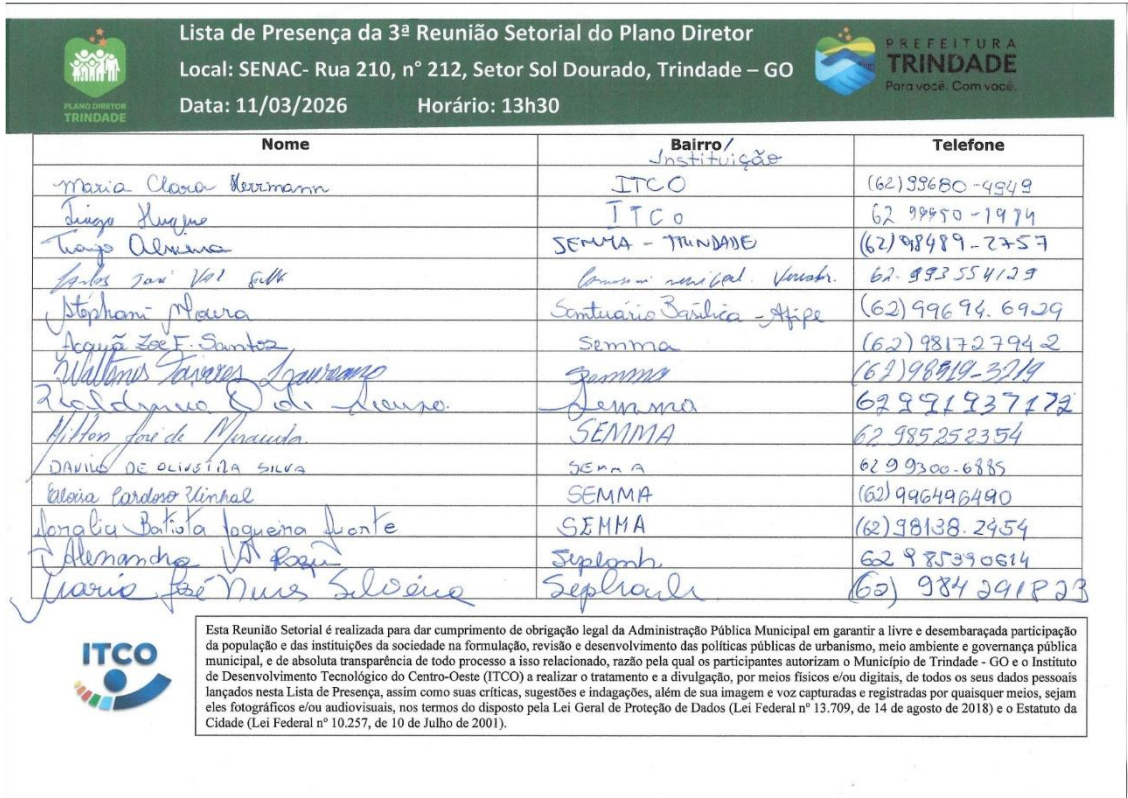 Lista de Presença da 3ª Reunião Setorial do Plano Diretor
Local: SENAC- Rua 210, n° 212, Setor Sol Dourado, Trindade – GO
Data: 11/03/2026 Horário: 13h30
PLANO DIRETOR
TRINDADE
PREFEITURA
TRINDADE
Para você. Com você.
Nome Bairro/ Instituição Telefone
Maria Clara Herrmann ITCO (62)99680-4949
Tiago ITCO 62
Tiago SEMMA - TRINDADE (62)98489-2757
Carlos José 62. 993554129
Stephani Moura Santuário Basílica - Afipe (62)99694.6929
Acauã Zoe F. Santos Semma (62)981727942
Tavares Laureano Semma (62)98519-3219
Semma 62991937172
Hilton José de Miranda. SEMMA 62 985252354
DANILO DE OLIVEIRA SILVA SEMMA 62 99300-6885
Eloisa Cardoso Vinhal SEMMA (62)996496490
Batista Nogueira SEMMA (62)98138.2454
Alessandra Seplanh 62 985390614
Maria José Nunes Silveira Seplanh (62) 984291823
ITCO
Esta Reunião Setorial é realizada para dar cumprimento de obrigação legal da Administração Pública Municipal em garantir a livre e desembaraçada participação
da população e das instituições da sociedade na formulação, revisão e desenvolvimento das políticas públicas de urbanismo, meio ambiente e governança pública
municipal, e de absoluta transparência de todo processo a isso relacionado, razão pela qual os participantes autorizam o Município de Trindade - GO e o Instituto
de Desenvolvimento Tecnológico do Centro-Oeste (ITCO) a realizar o tratamento e a divulgação, por meios físicos e/ou digitais, de todos os seus dados pessoais
lançados nesta Lista de Presença, assim como suas críticas, sugestões e indagações, além de sua imagem e voz capturadas e registradas por quaisquer meios, sejam
eles fotográficos e/ou audiovisuais, nos termos do disposto pela Lei Geral de Proteção de Dados (Lei Federal nº 13.709, de 14 de agosto de 2018) e o Estatuto da
Cidade (Lei Federal nº 10.257, de 10 de Julho de 2001).